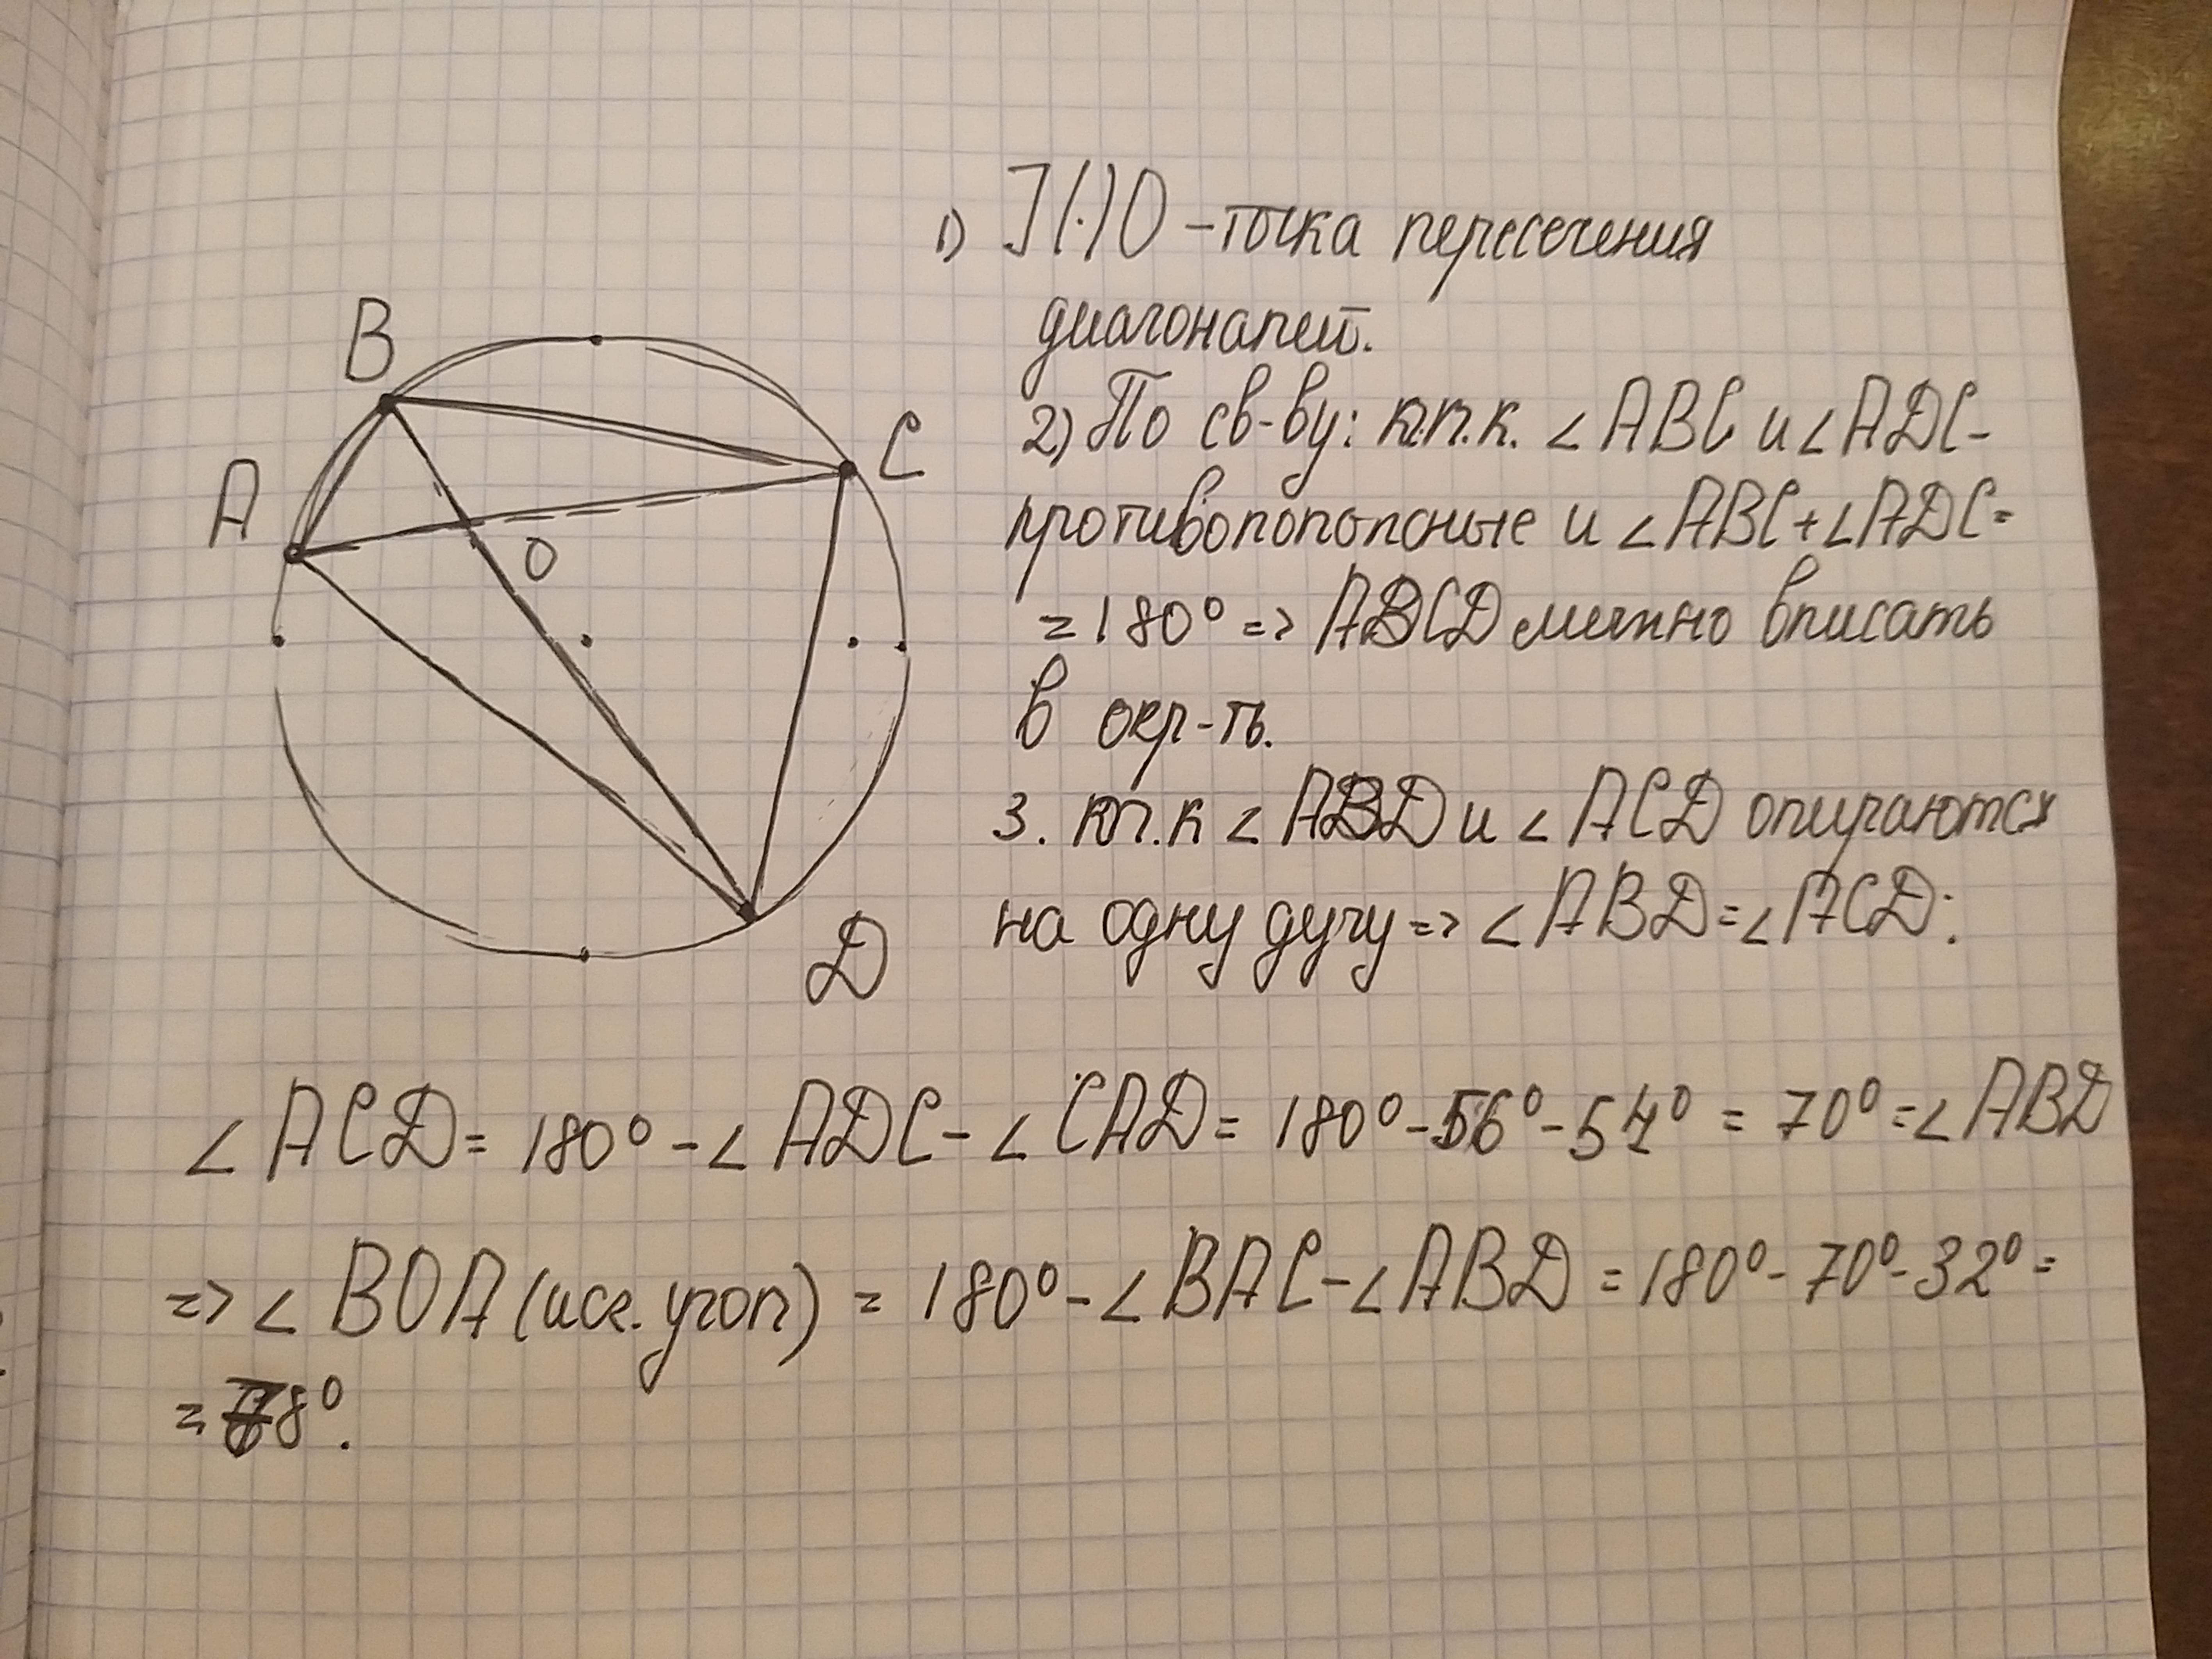 B
C
A
O
D
1) ](·)O - точка пересечения
диагоналей.
2) По св-ву: т.к. ∠ABC и ∠ADC -
противоположные и ∠ABC+∠ADC=
=180° => ABCD можно вписать
в окр-ть.
3. т.к ∠ABD и ∠ACD опираются
на одну дугу => ∠ABD=∠ACD:
∠ACD= 180° - ∠ADC - ∠CAD= 180° - 56° - 54° = 70° = ∠ABD
=> ∠BOA (иск. угол) = 180° - ∠BAC - ∠ABD = 180° - 70° - 32° =
= 78°.